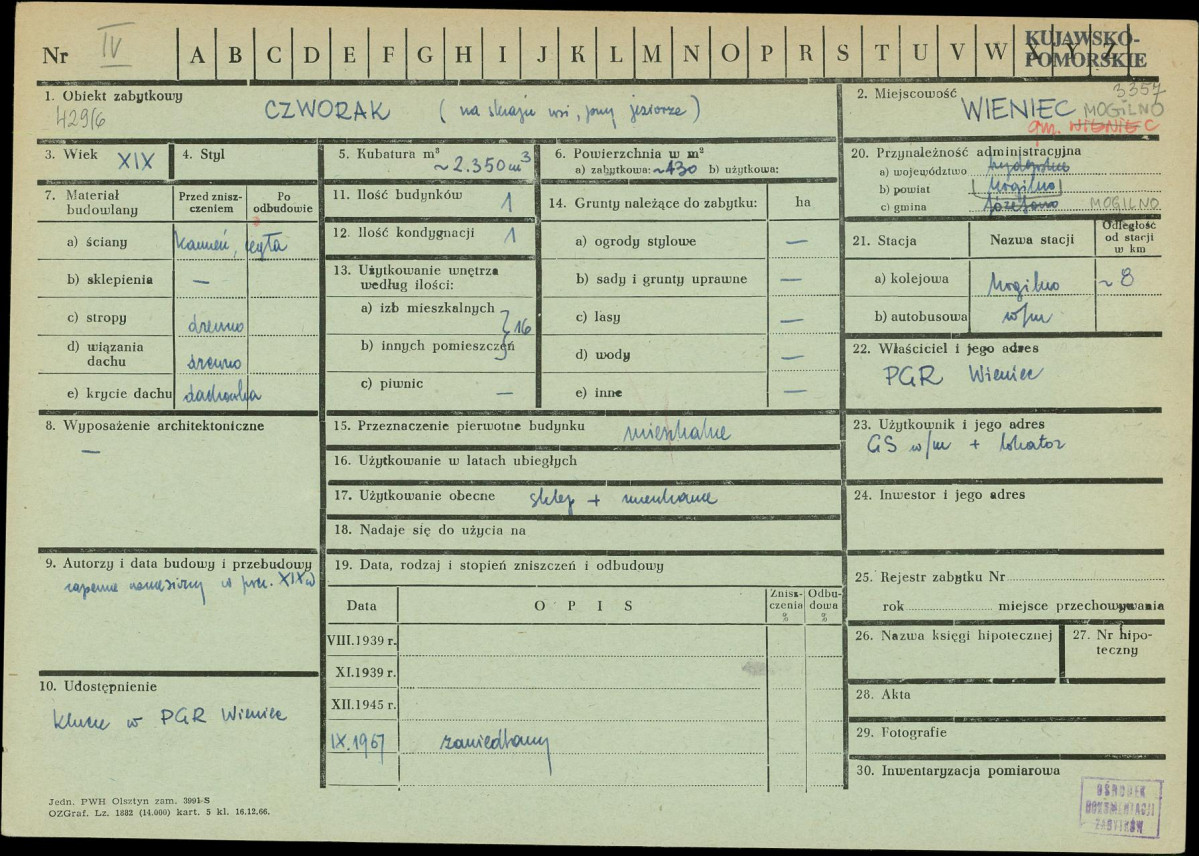 Nr IV A B C D E F G H I J K L M N O P R S T U V W X Y Z KUJAWSKO-
POMORSKIE
1. Obiekt zabytkowy
429/6
CZWORAK (na skraju wsi, przy jeziorze)
2. Miejscowość 3357
WIENIEC MOGILNO
gm. WIENIEC
3. Wiek XIX
4. Styl
5. Kubatura m³
~2.350 m³
6. Powierzchnia w m²
a) zabytkowa: ~430 b) użytkowa:
20. Przynależność administracyjna
a) województwo bydgoskie
b) powiat Mogilno
c) gmina Józefowo MOGILNO
7. Materiał
budowlany
Przed znisz-
czeniem
Po
odbudowie
a) ściany kamień, cegła
b) sklepienia —
c) stropy drewno
d) wiązania
dachu drewno
e) krycie dachu dachówka
11. Ilość budynków 1
12. Ilość kondygnacji 1
13. Użytkowanie wnętrza
według ilości:
a) izb mieszkalnych
} 16
b) innych pomieszczeń
c) piwnic —
14. Grunty należące do zabytku: ha
a) ogrody stylowe —
b) sady i grunty uprawne —
c) lasy —
d) wody —
e) inne —
21. Stacja
Nazwa stacji
Odległość
od stacji
w km
a) kolejowa Mogilno ~8
b) autobusowa w/m
22. Właściciel i jego adres
PGR Wieniec
8. Wyposażenie architektoniczne
—
15. Przeznaczenie pierwotne budynku mieszkalne
16. Użytkowanie w latach ubiegłych
17. Użytkowanie obecne sklep + mieszkanie
18. Nadaje się do użycia na
23. Użytkownik i jego adres
GS w/m + lokator
24. Inwestor i jego adres
9. Autorzy i data budowy i przebudowy
zapewne wzniesiony w poł. XIX w
19. Data, rodzaj i stopień zniszczeń i odbudowy
Data
O P I S
Znisz-
czenia
%
Odbu-
dowa
%
VIII.1939 r.
XI.1939 r.
XII.1945 r.
IX.1967 zaniedbany
25. Rejestr zabytku Nr
rok miejsce przechowywania
26. Nazwa księgi hipotecznej
27. Nr hipo-
teczny
10. Udostępnienie
Klucze w PGR Wieniec
28. Akta
29. Fotografie
30. Inwentaryzacja pomiarowa
Jedn. PWH Olsztyn zam. 3991-S
OZGraf. Lz. 1882 (14.000) kart. 5 kl. 16.12.66.
OŚRODEK
DOKUMENTACJI
ZABYTKÓW